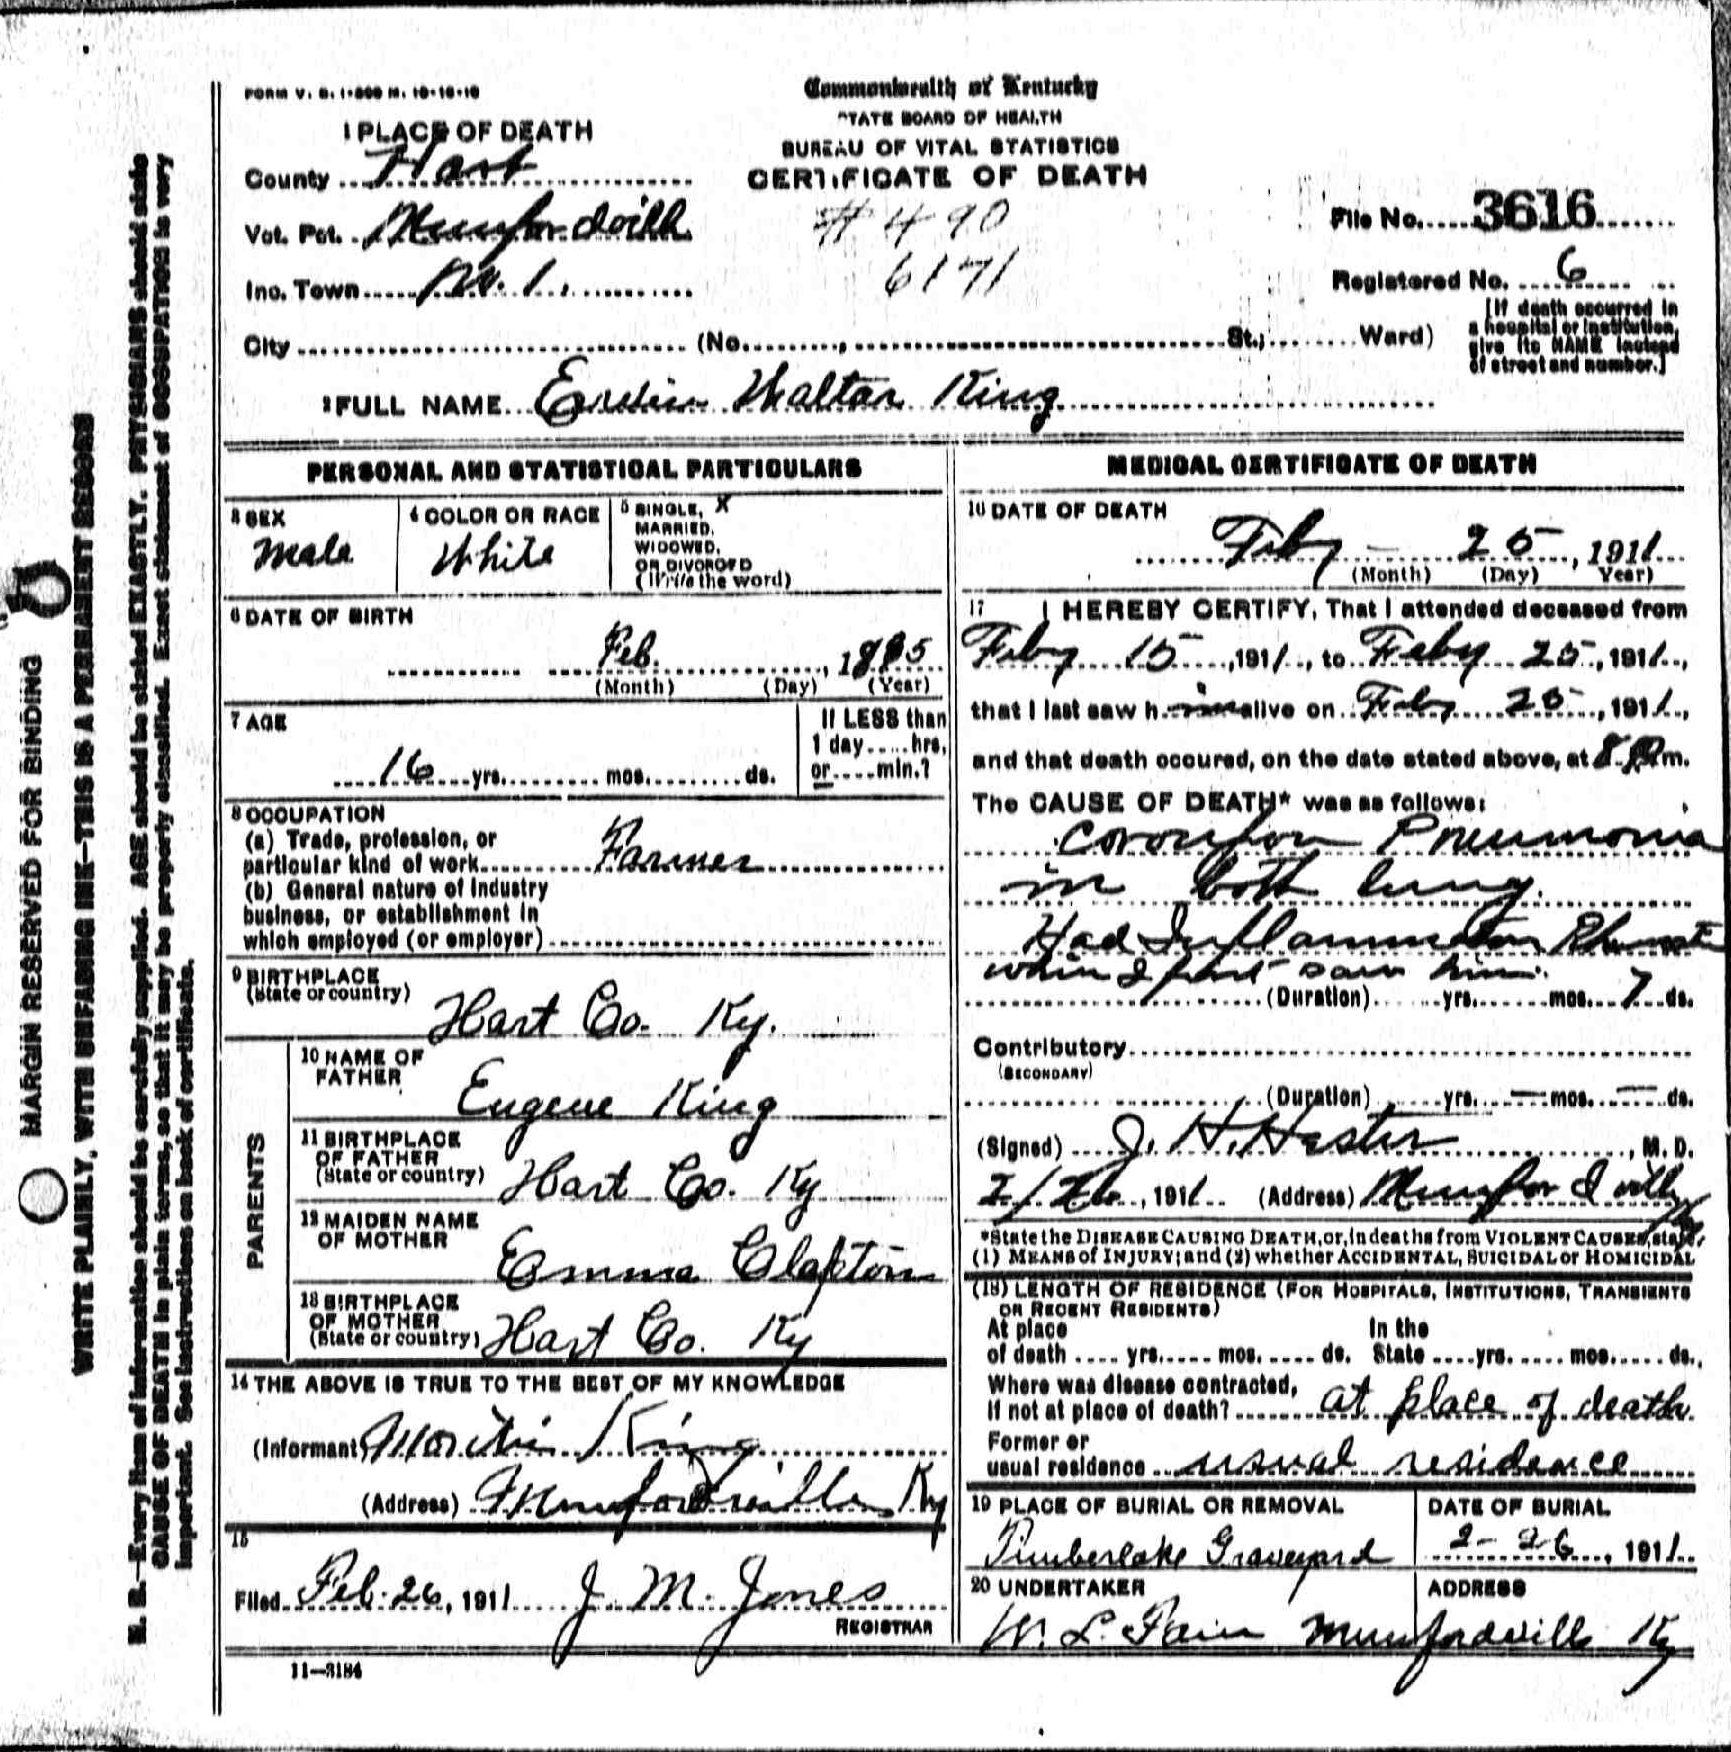 FORM V. S. 1-500 M. 10-10-10
Commonwealth of Kentucky
STATE BOARD OF HEALTH
BUREAU OF VITAL STATISTICS
CERTIFICATE OF DEATH
1 PLACE OF DEATH
County Hart
Vot. Pct. Munfordville
# 490
File No. 3616
Inc. Town No. 1.
6171
Registered No. 6
City (No. , St.; Ward)
[If death occurred in
a hospital or institution,
give its NAME instead
of street and number.]
2 FULL NAME Erwin Walter King
PERSONAL AND STATISTICAL PARTICULARS
3 SEX
Male
4 COLOR OR RACE
White
5 SINGLE, X
MARRIED,
WIDOWED,
OR DIVORCED
(Write the word)
6 DATE OF BIRTH
Feb. , 1895
(Month) (Day) (Year)
7 AGE
16 yrs. mos. ds.
If LESS than
1 day hrs.
or min.?
8 OCCUPATION
(a) Trade, profession, or
particular kind of work Farmer
(b) General nature of industry
business, or establishment in
which employed (or employer)
9 BIRTHPLACE
(State or country)
Hart Co. Ky.
PARENTS
10 NAME OF
FATHER
Eugene King
11 BIRTHPLACE
OF FATHER
(State or country) Hart Co. Ky
12 MAIDEN NAME
OF MOTHER
Emma Clapton
13 BIRTHPLACE
OF MOTHER
(State or country) Hart Co. Ky
14 THE ABOVE IS TRUE TO THE BEST OF MY KNOWLEDGE
(Informant) King
(Address) Munfordville Ky
15
Filed Feb. 26, 1911 J. M. Jones
REGISTRAR
11-3184
MEDICAL CERTIFICATE OF DEATH
16 DATE OF DEATH
Feby - 25, 1911
(Month) (Day) Year)
17 I HEREBY CERTIFY, That I attended deceased from
Feby 15, 1911, to Feby 25, 1911,
that I last saw h im alive on Feby 25, 1911,
and that death occured, on the date stated above, at 8 P m.
The CAUSE OF DEATH* was as follows:
Pneumonia
in both lung.
Had Inflammatory
when I first saw him.
(Duration) yrs. mos. 7 ds.
Contributory
(SECONDARY)
(Duration) yrs. — mos. — ds.
(Signed) J. H. Hester, M. D.
2/26, 1911 (Address) Munfordville Ky
*State the DISEASE CAUSING DEATH, or, in deaths from VIOLENT CAUSES, state
(1) MEANS of INJURY; and (2) whether ACCIDENTAL, SUICIDAL or HOMICIDAL
(18) LENGTH OF RESIDENCE (FOR HOSPITALS, INSTITUTIONS, TRANSIENTS
OR RECENT RESIDENTS)
At place In the
of death yrs. mos. ds. State yrs. mos. ds.,
Where was disease contracted,
If not at place of death? at place of death.
Former or
usual residence usual residence
19 PLACE OF BURIAL OR REMOVAL
Timberlake Graveyard
DATE OF BURIAL
2-26, 1911
20 UNDERTAKER
W. L. Fain
ADDRESS
Munfordville Ky
MARGIN RESERVED FOR BINDING
WRITE PLAINLY, WITH UNFADING INK—THIS IS A PERMANENT RECORD
N. B.—Every item of information should be carefully supplied. AGE should be stated EXACTLY. PHYSICIANS should state
CAUSE OF DEATH in plain terms, so that it may be properly classified. Exact statement of OCCUPATION is very
important. See instructions on back of certificate.